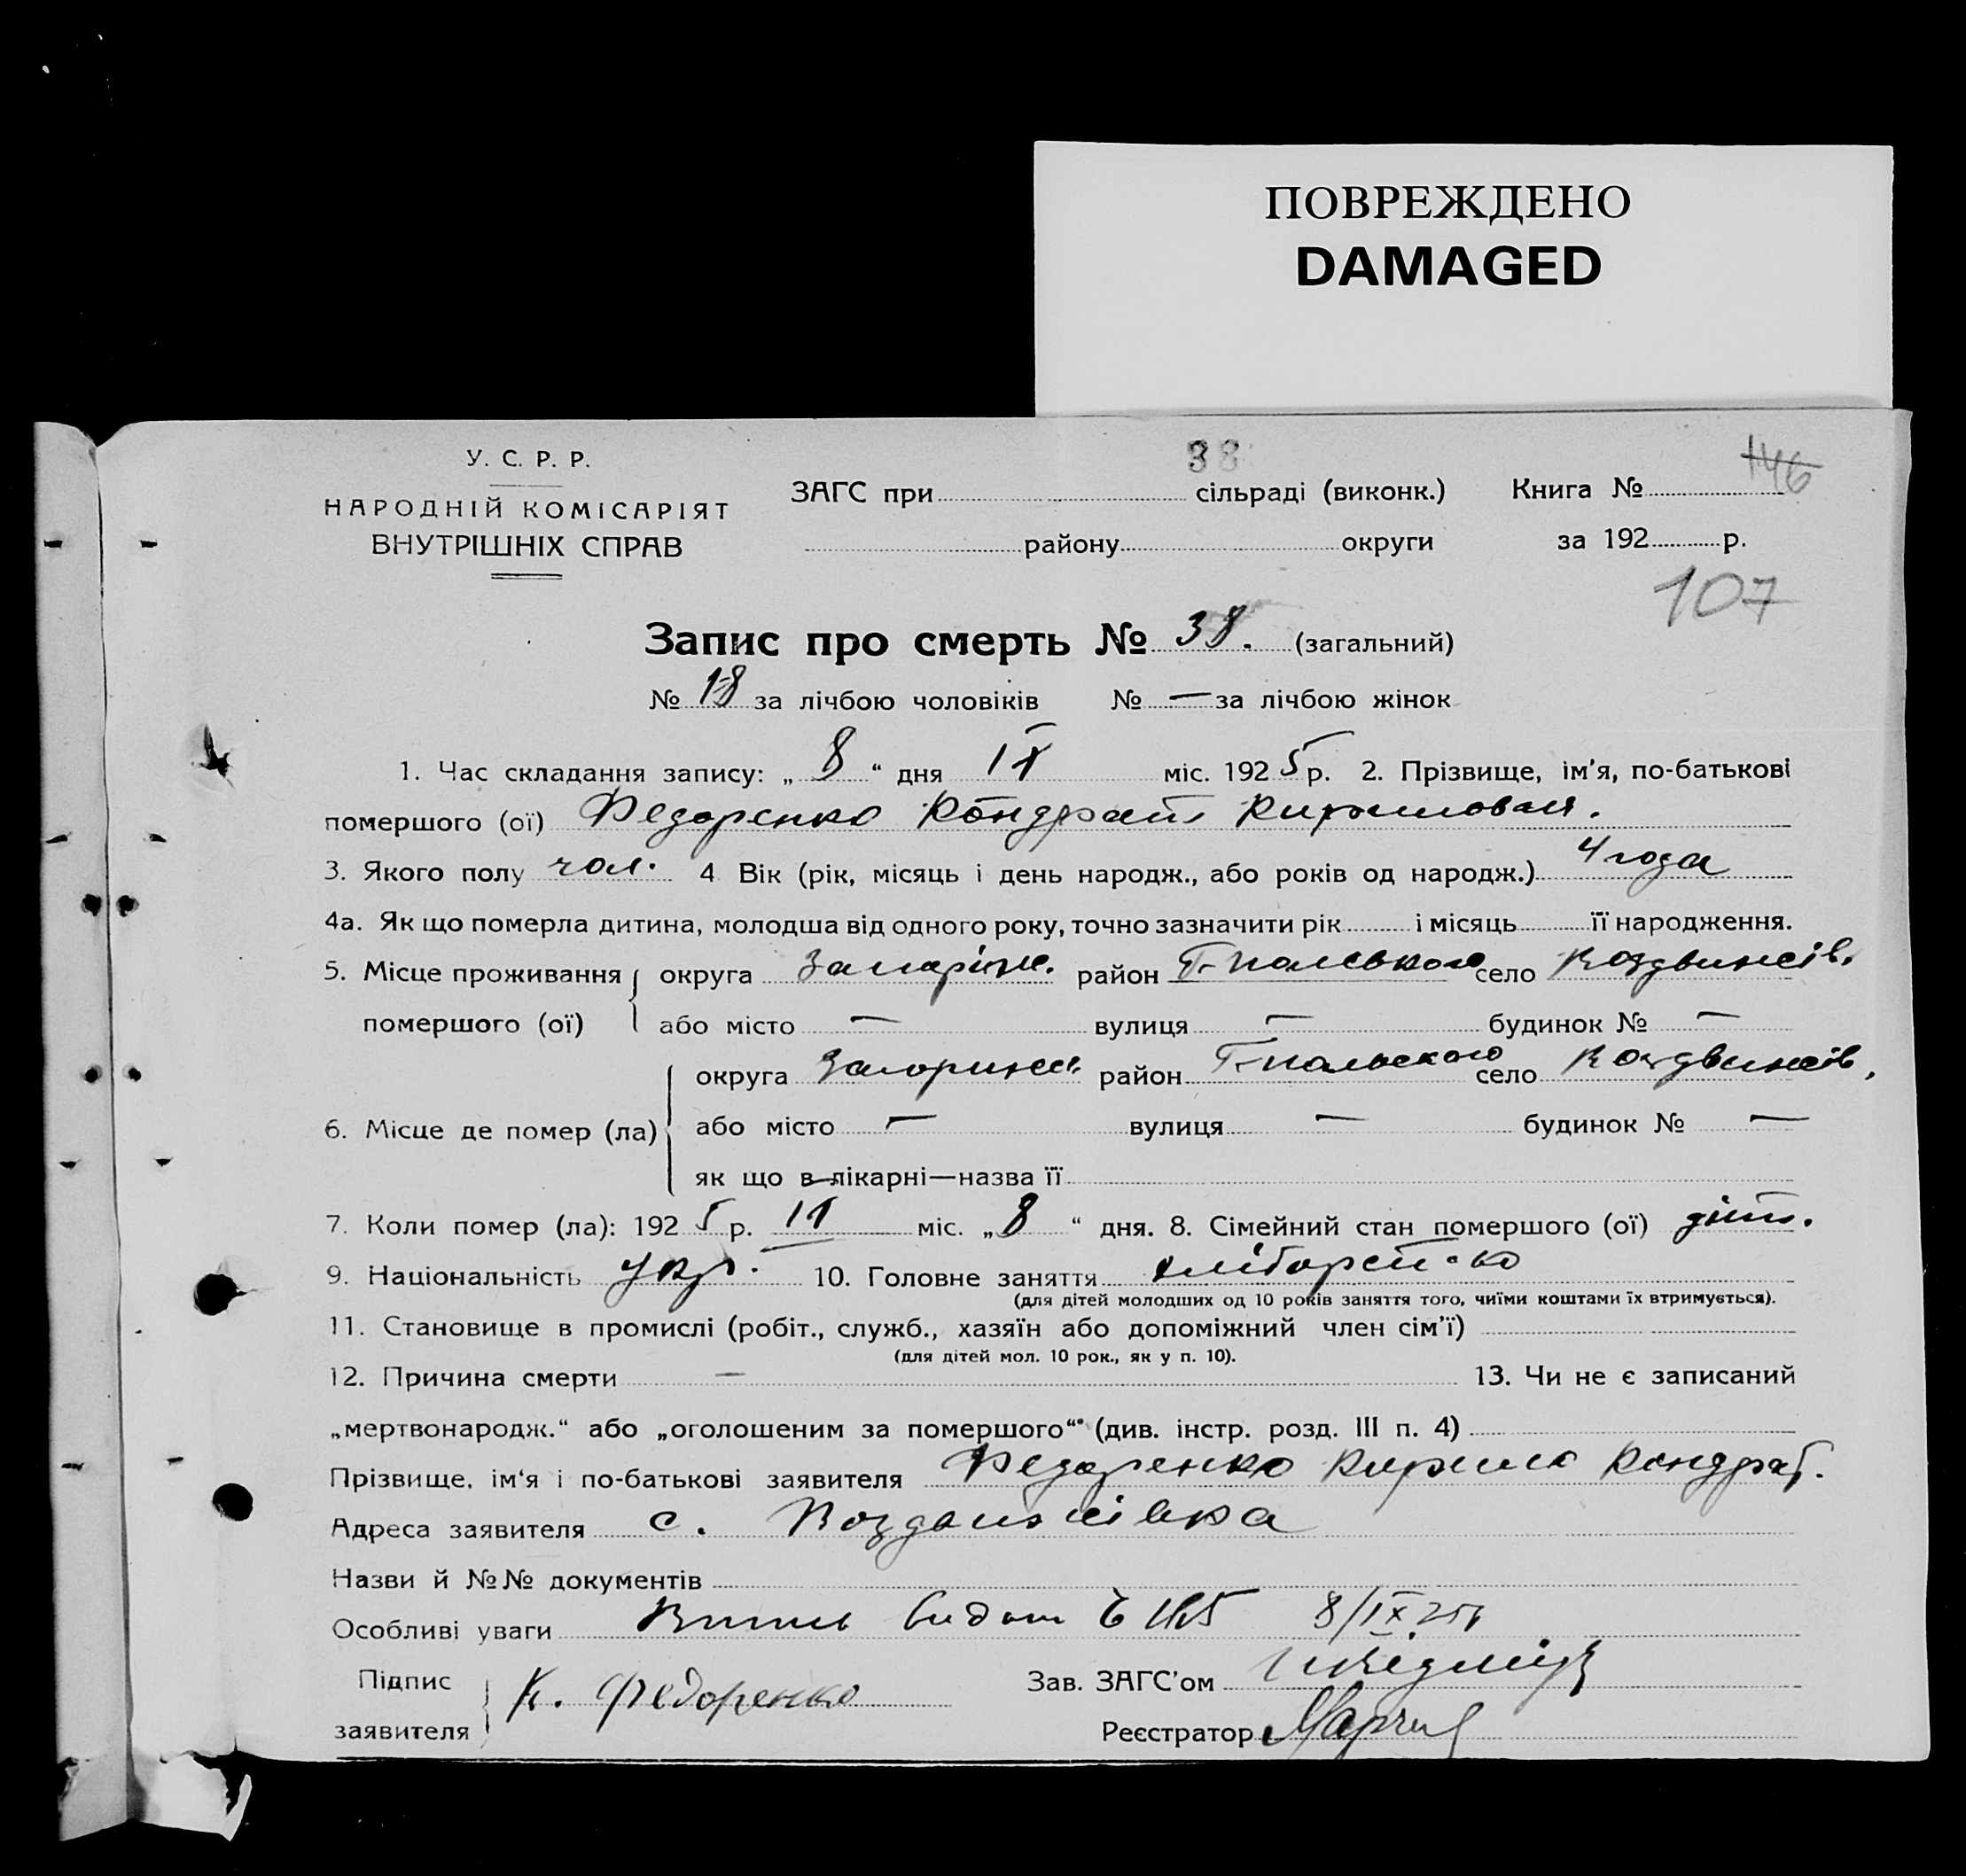 ПОВРЕЖДЕНО
DAMAGED
У. С. Р. Р.
НАРОДНІЙ КОМІСАРІЯТ
ВНУТРІШНІХ СПРАВ
38
ЗАГС при сільраді (виконк.) Книга № 146
району округи за 192 р.
107
Запис про смерть № 38. (загальний)
№ 18 за лічбою чоловіків № — за лічбою жінок
1. Час складання запису: „ 8 “ дня IX міс. 192 5 р. 2. Прізвище, ім'я, по-батькові
помершого (ої) Федоренко Кондрат Кирилович.
3. Якого полу чол. 4 Вік (рік, місяць і день народж., або років од народж.) 4 года
4а. Як що померла дитина, молодша від одного року, точно зазначити рік і місяць її народження.
5. Місце проживання округа Запоріж. район Г-польського село Воздвижів.
помершого (ої) або місто — вулиця — будинок № —
округа район Г-польского село Воздвижів,
6. Місце де помер (ла) або місто — вулиця — будинок № —
як що в лікарні—назва її
7. Коли помер (ла): 192 5 р. міс. „ 8 “ дня. 8. Сімейний стан помершого (ої) діт.
9. Національність укр. 10. Головне заняття
(для дітей молодших од 10 років заняття того, чиїми коштами їх втримується).
11. Становище в промислі (робіт., служб., хазяїн або допоміжний член сім'ї)
(для дітей мол. 10 рок., як у п. 10).
12. Причина смерти — 13. Чи не є записаний
„мертвонародж.“ або „оголошеним за помершого“ (див. інстр. розд. III п. 4)
Прізвище, ім'я і по-батькові заявителя Федоренко Кирило Кондрат.
Адреса заявителя с. Воздвижівка
Назви й №№ документів
Особливі уваги 8/IX 25
Підпис
заявителя К. Федоренко Зав. ЗАГС'ом
Реєстратор